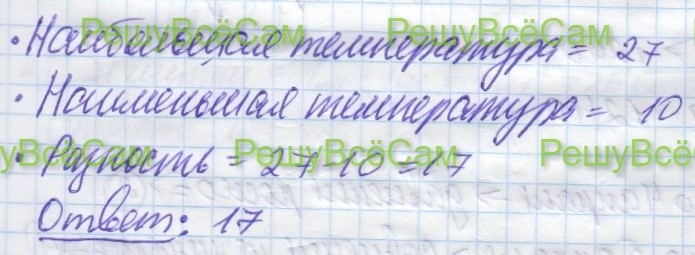 РешуВсёСам РешуВсёСам
• Наибольшая температура = 27
• Наименьшая температура = 10
РешуВсёСам РешуВсёСам
• Разность = 27-10=17
Ответ: 17